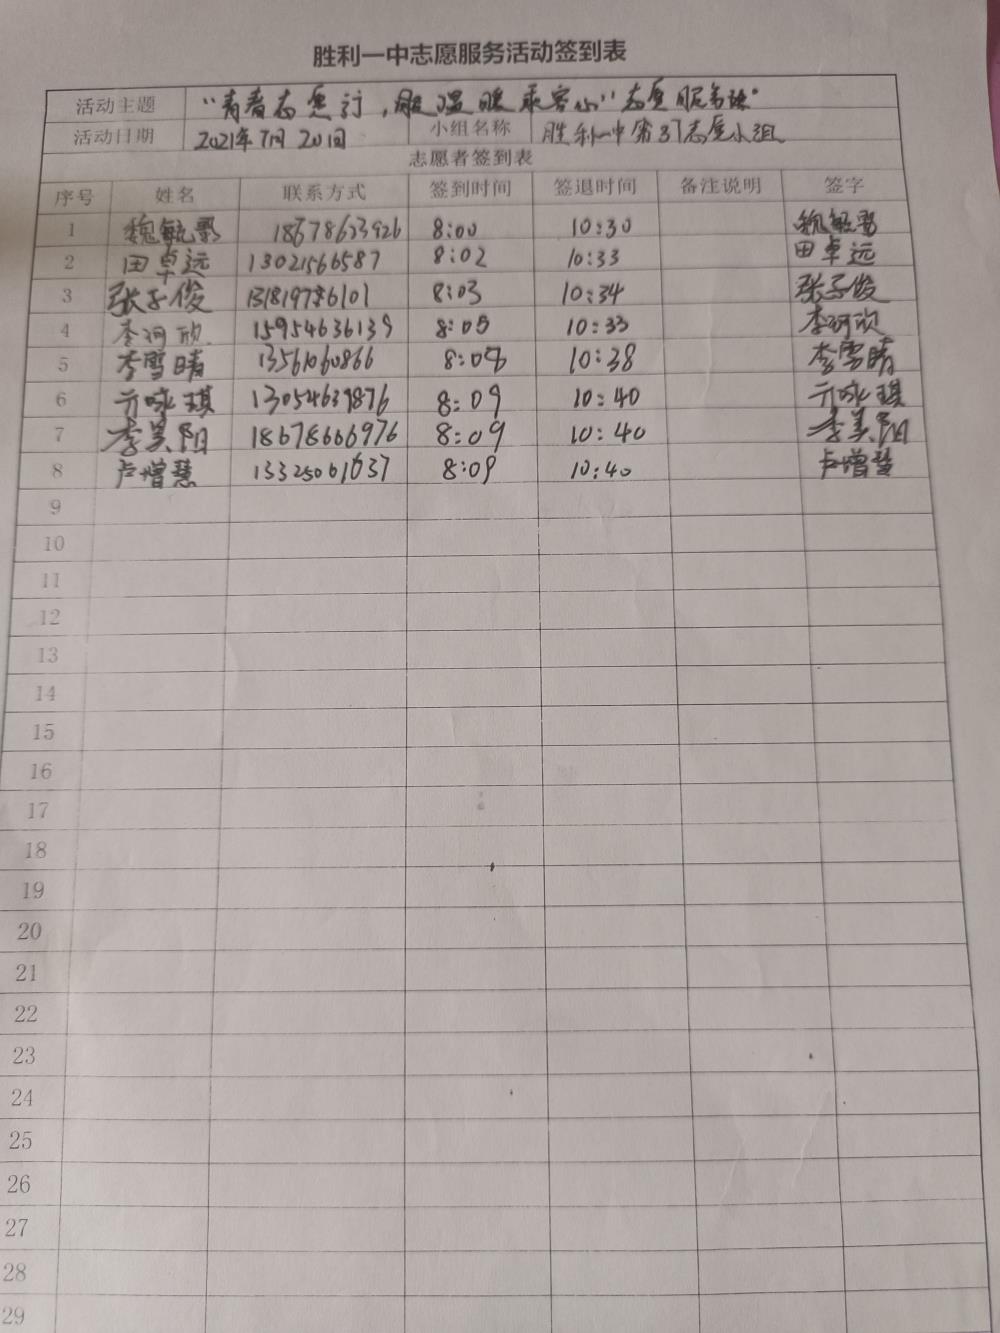 胜利一中志愿服务活动签到表
活动主题 "青春志愿行,服温暖乘客心"志愿服务
活动日期 2021年7月20日 小组名称 胜利一中第37志愿小组
志愿者签到表
序号 姓名 联系方式 签到时间 签退时间 备注说明 签字
1 魏毓 18678623926 8:00 10:30 魏毓
2 田卓远 13021566587 8:02 10:33 田卓远
3 张子俊 131819786101 8:03 10:34 张子俊
4 李珂欣 15954636139 8:05 10:33 李珂欣
5 李雪晴 13561060866 8:08 10:38 李雪晴
6 亓咏琪 13054639876 8:09 10:40 亓咏琪
7 李美阳 18678666976 8:09 10:40 李美阳
8 卢增慧 13325061637 8:09 10:40 卢增慧
9
10
11
12
13
14
15
16
17
18
19
20
21
22
23
24
25
26
27
28
29